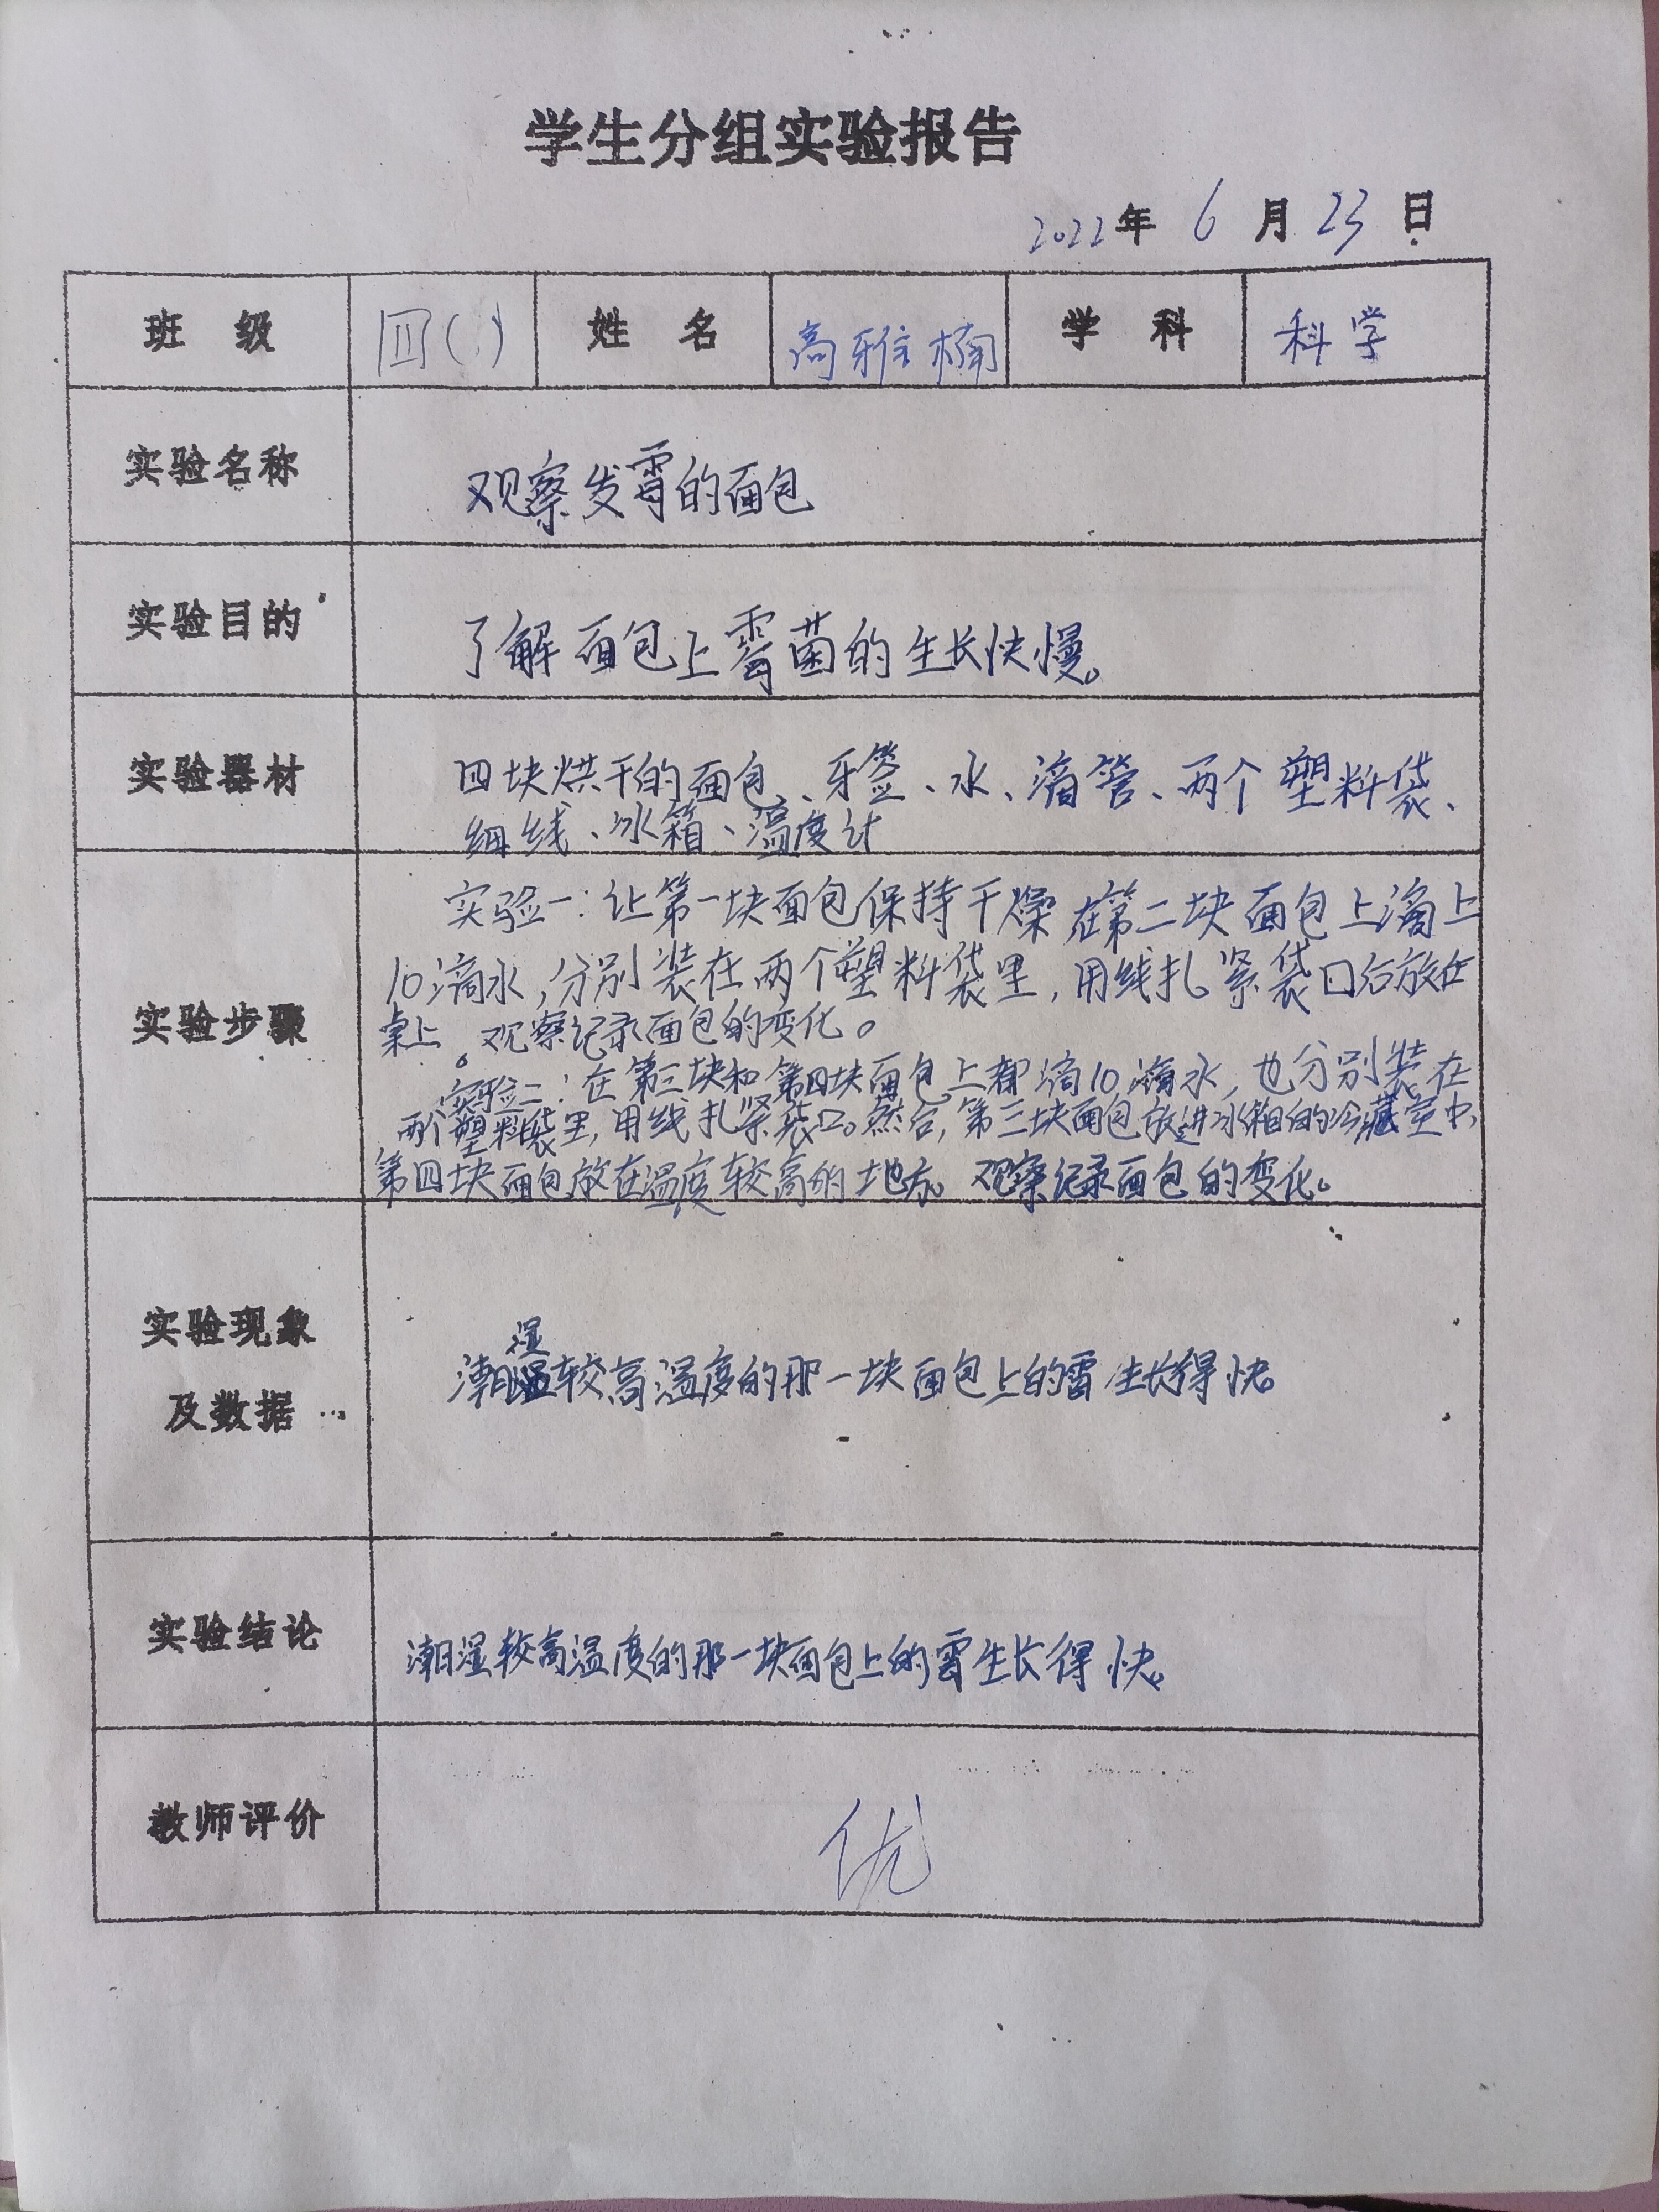 学生分组实验报告
2022年 6 月 23 日
班 级 四( ) 姓 名 高雅楠 学 科 科学
实验名称 观察发霉的面包
实验目的 了解面包上霉菌的生长快慢。
实验器材 四块烘干的面包、牙签、水、滴管、两个塑料袋、
细线、冰箱、温度计
实验步骤
实验一:让第一块面包保持干燥在第二块面包上滴上
10滴水,分别装在两个塑料袋里,用线扎紧袋口后放在
桌上。观察记录面包的变化。
实验二:在第三块和第四块面包上都滴10滴水,也分别装在
两个塑料袋里,用线扎紧袋口。然后,第三块面包放进冰箱的冷藏室中,
第四块面包放在温度较高的地方。观察记录面包的变化。
实验现象
及数据
潮湿较高温度的那一块面包上的霉生长得快。
实验结论 潮湿较高温度的那一块面包上的霉生长得快。
教师评价 优